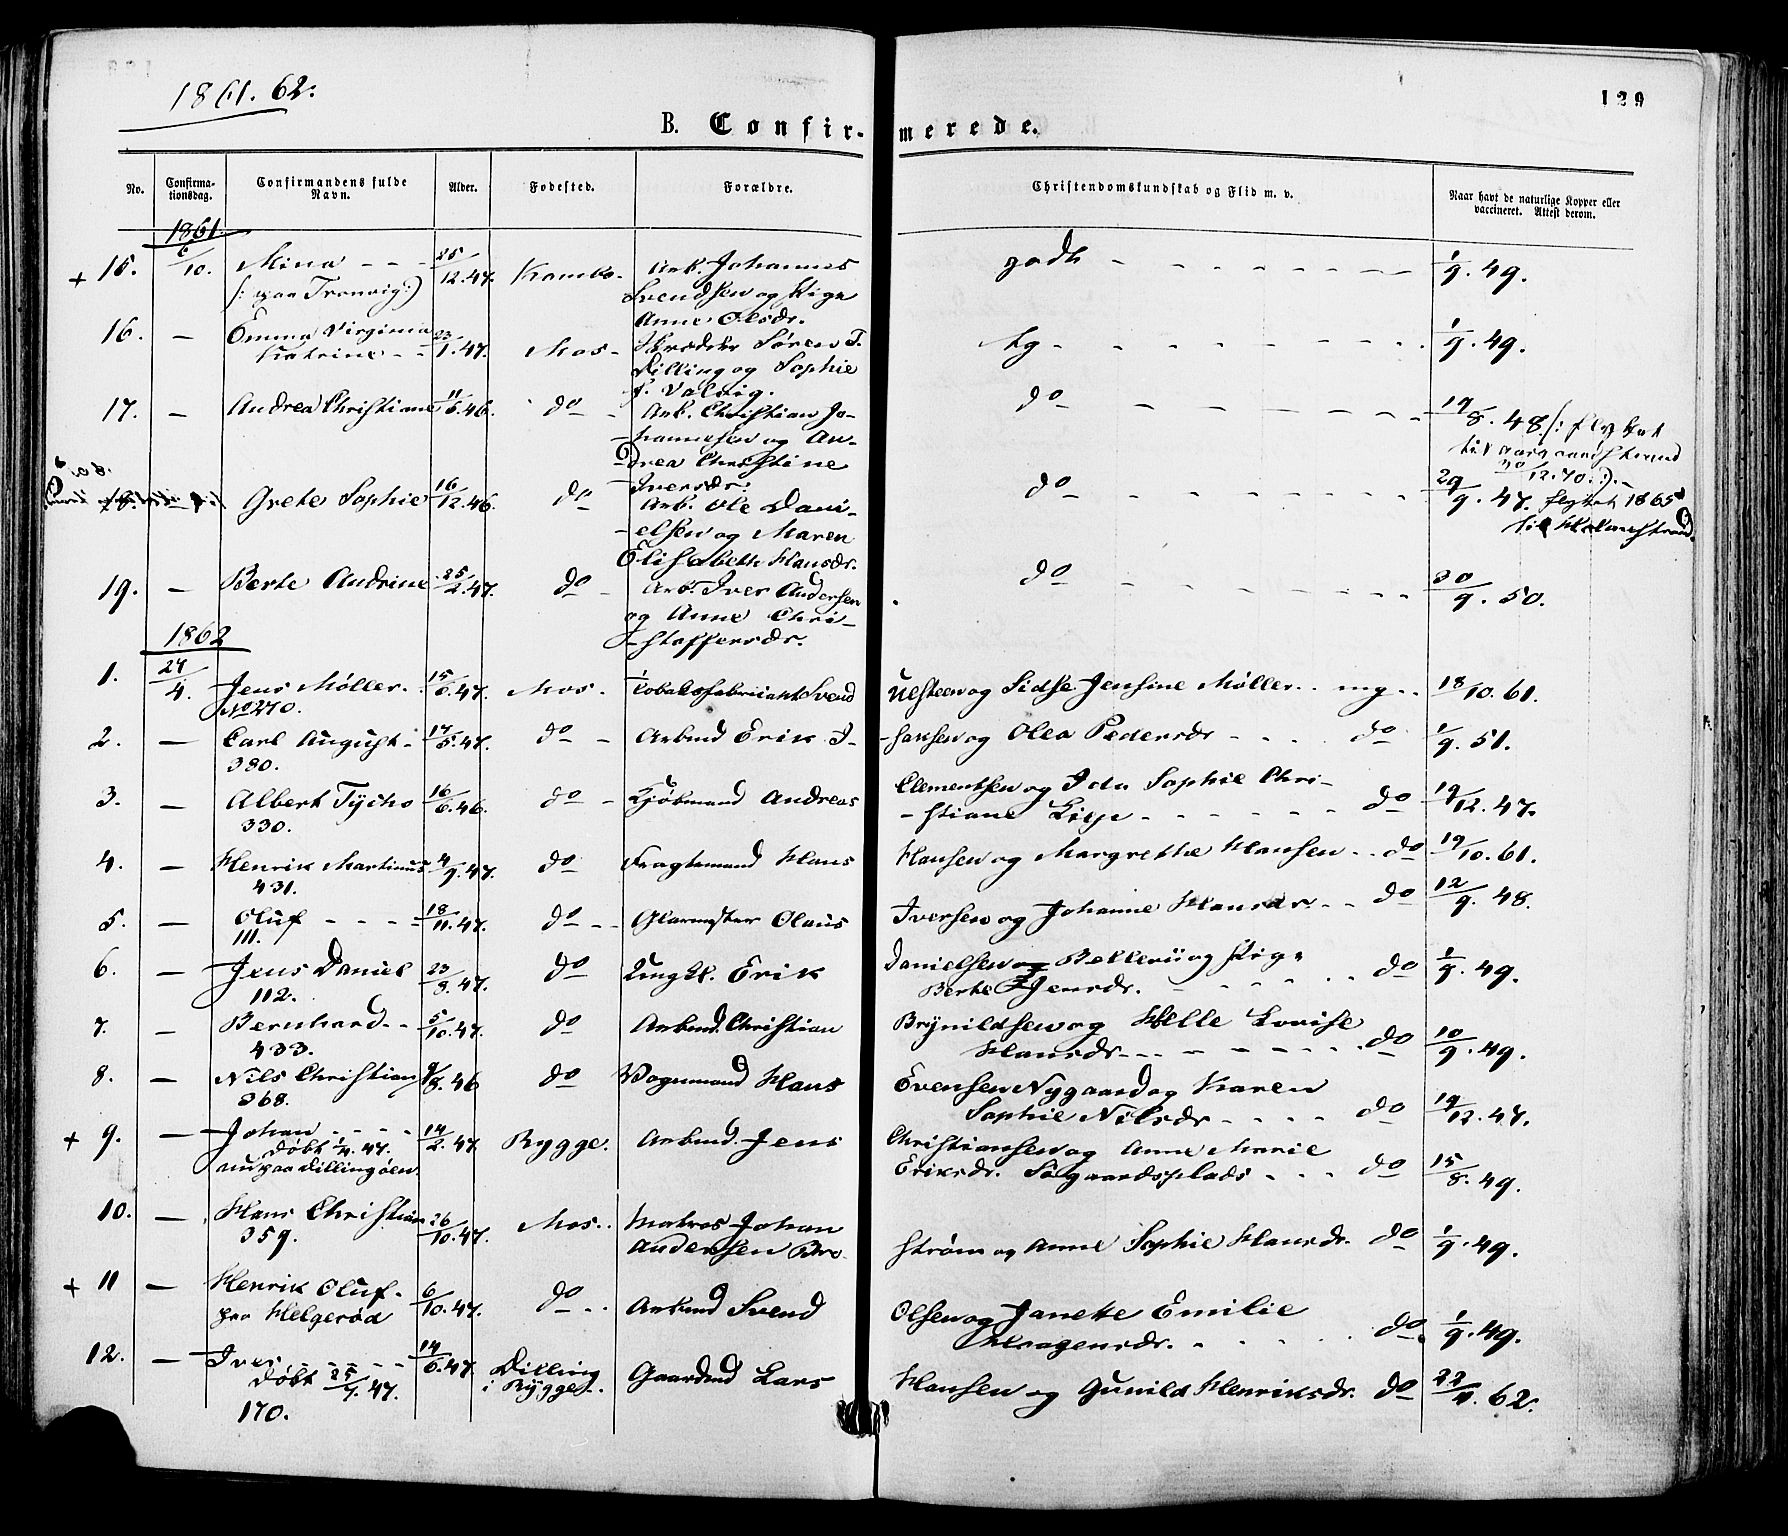 1861. 62.
129
B. Confirmerede.
No.
Confirmationsdag.
Confirmandens fulde Navn.
Alder.
Fødested.
Forældre.
Christendomskundskab og Flid m. v.
Naar havt de naturlige Kopper eller vaccineret. Attest derom.
1861.
+ 15. 6/10. Mina - - - 25/12.47. Kambo. Arb. Johannes godt - - - 1/9.49.
(: paa Tronvig :) Svendsen og Pige
Anne Olsdr.
16. — Emma Virginia 23/1.47. Mos - Skredder Søren T. tg - - - 1/9.49.
Katrine - - Dilling og Sophie
f. Valvig.
17. — Andrea Christiane 11/5.46. do - Arb. Christian Jo- do - - - 19/8.48 (: flyttet
hannesen og An- til Aasgaardstrand
drea Christine 30/12.70 :).
Iversdr:
18. Grete Sophie 16/12.46. do Arb. Ole Dani- do - - - 29/9.47. flyttet 1865
elsen og Maren til Holmestrand.
Elisabeth Hansdr.
19. — Berte Andrine 25/2.47. do - Arb. Iver Andersen do - - - 30/9.50.
og Anne Chri-
stoffersdr.
1862
1. 27/4. Jens Møller. 15/6.47. Mos. Tobaksfabricant Svend Ulsteen og Sidse Jensine Møller. mg. 18/10.61.
No 270.
2. — Carl August - 17/5.47. do - Arbmd Erik J- hansen og Olea Pedersdr - - - do 1/9.51.
380.
3. — Albert Tycho 16/6.46. do - Kjøbmand Andreas Clementsen og Ida Sophie Chri-
330. stiane Lilje - - - do 19/12.47.
4. — Henrik Martinus 4/9.47. do Fragtemand Hans Hansen og Margrethe Hansen - do 19/10.61.
431.
5. — Oluf - - - 18/11.47. do - - Glarmester Olaus Iversen og Johanne Hansdr - - do 12/9.48.
111.
6. — Jens Daniel 23/8.47. do Ungk. Erik Danielsen Bellerud og Pige
112. Berte Jensdr. - - - do 1/9.49.
7. — Bernhard - - 5/10.47. do Arbmd. Christian Brynildsen og Helle Lovise
433. Hansdr - - - do 10/9.49.
8. — Nils Christian 9/8.46 do Vognmand Hans Evensen Nygaard og Karen
368. Sophie Nilsdr - - - do 19/12.47.
+ 9. — Johan - - - 14/2.47. Rygge. Arbmd. Jens Christiansen og Anne Marie
døbt 1/4.47. Eriksdr. Søgaardsplads - - - do 15/8.49.
nu paa Dillingøen.
10. — Hans Christian 26/10.47. Mos. Matros Johan
359. Andersen Bro- strøm og Anne Sophie Hansdr. do 1/9.49.
+ 11 — Henrik Oluf - 6/10.47. do - - Arbmd Svend Olsen og Janette Emilie
paa Helgerød Mogensdr. - - - do 1/9.49.
12. — Iver - - - 14/6.47. Dilling Gaardmd Lars Hansen og Gunild Henriksdr. do 22/4.62.
døbt 25/7.47. i Rygge.
170.